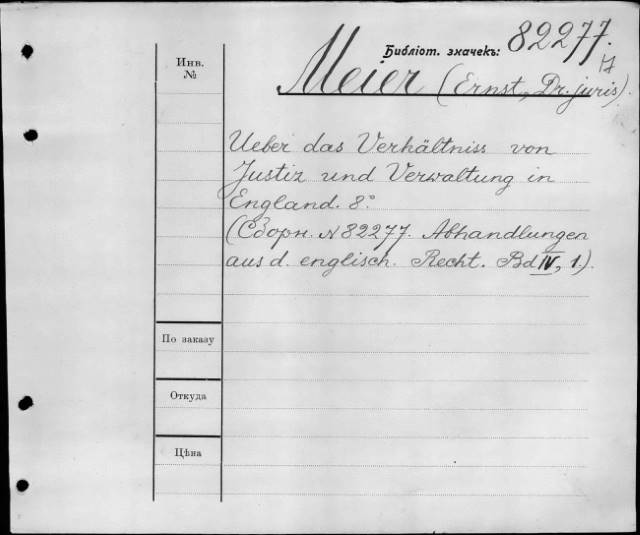 Библіот. значекъ: 82277.
17
Инв.
№
Meier (Ernst, Dr. juris).
Ueber das Verhältniss von
Justiz und Verwaltung in
England. 8°
(Сборн. № 82277. Abhandlungen
aus d. englisch. Recht. Bd IV, 1).
По заказу
Откуда
Цѣна